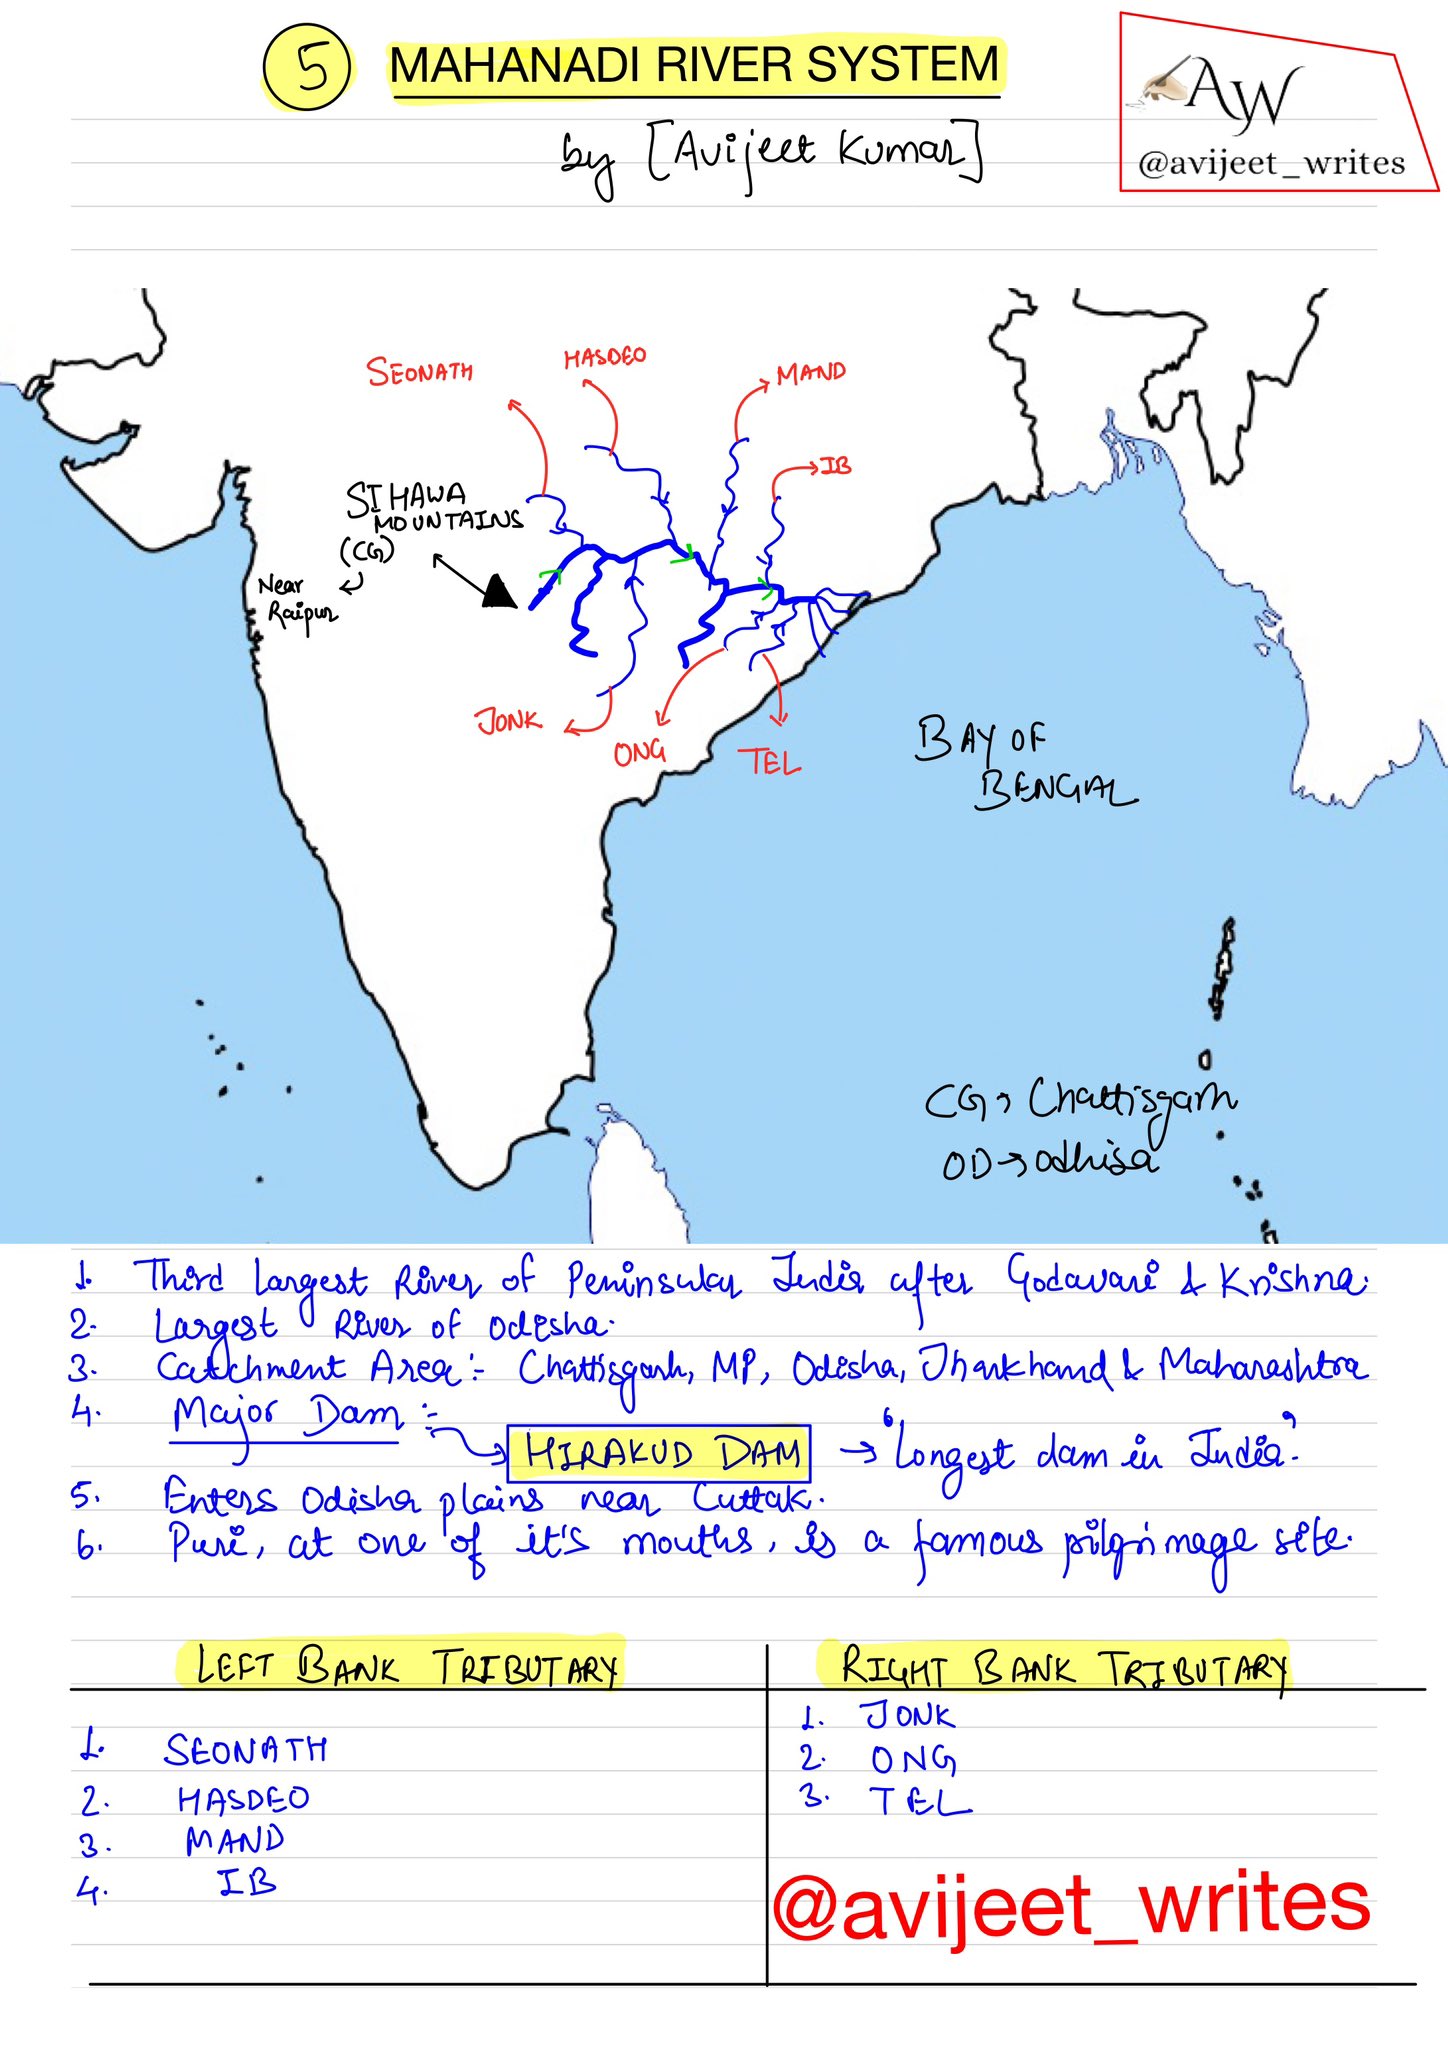 5 MAHANADI RIVER SYSTEM
by [Avijeet Kumar]
AW
@avijeet_writes
SEONATH
HASDEO
MAND
IB
SIHAWA
MOUNTAINS
(CG)
Near
Raipur
JONK
ONG
TEL
BAY OF
BENGAL
CG → Chattisgarh
OD → Odhisa
1. Third largest River of Peninsular India after Godavari & Krishna.
2. Largest River of Odisha.
3. Catchment Area :- Chattisgarh, MP, Odisha, Jharkhand & Maharashtra
4. Major Dam :- → HIRAKUD DAM → 'Longest dam in India'.
5. Enters Odisha plains near Cuttak.
6. Puri, at one of it's mouths, is a famous pilgrimage site.
LEFT BANK TRIBUTARY
1. SEONATH
2. HASDEO
3. MAND
4. IB
RIGHT BANK TRIBUTARY
1. JONK
2. ONG
3. TEL
@avijeet_writes